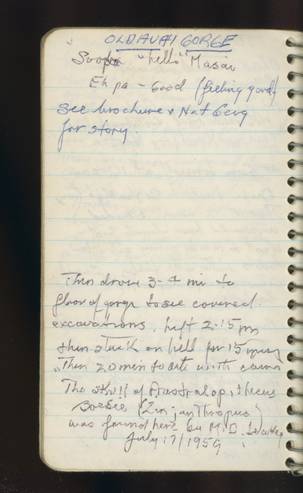 OLDUVAI GORGE
Soopa "hello" Masai
Eh pa - Good (feeling good)
See brochure & Nat Geog
for story.
Then drove 3-4 mi to
floor of gorge to see covered
excavations. Left 2:15 pm
then stuck on hill for 15 min
Then 20 min to site with
The skull of Australopithecus
boisei (Zinjanthropus)
was found here by M.D. Leakey
July 17/1959